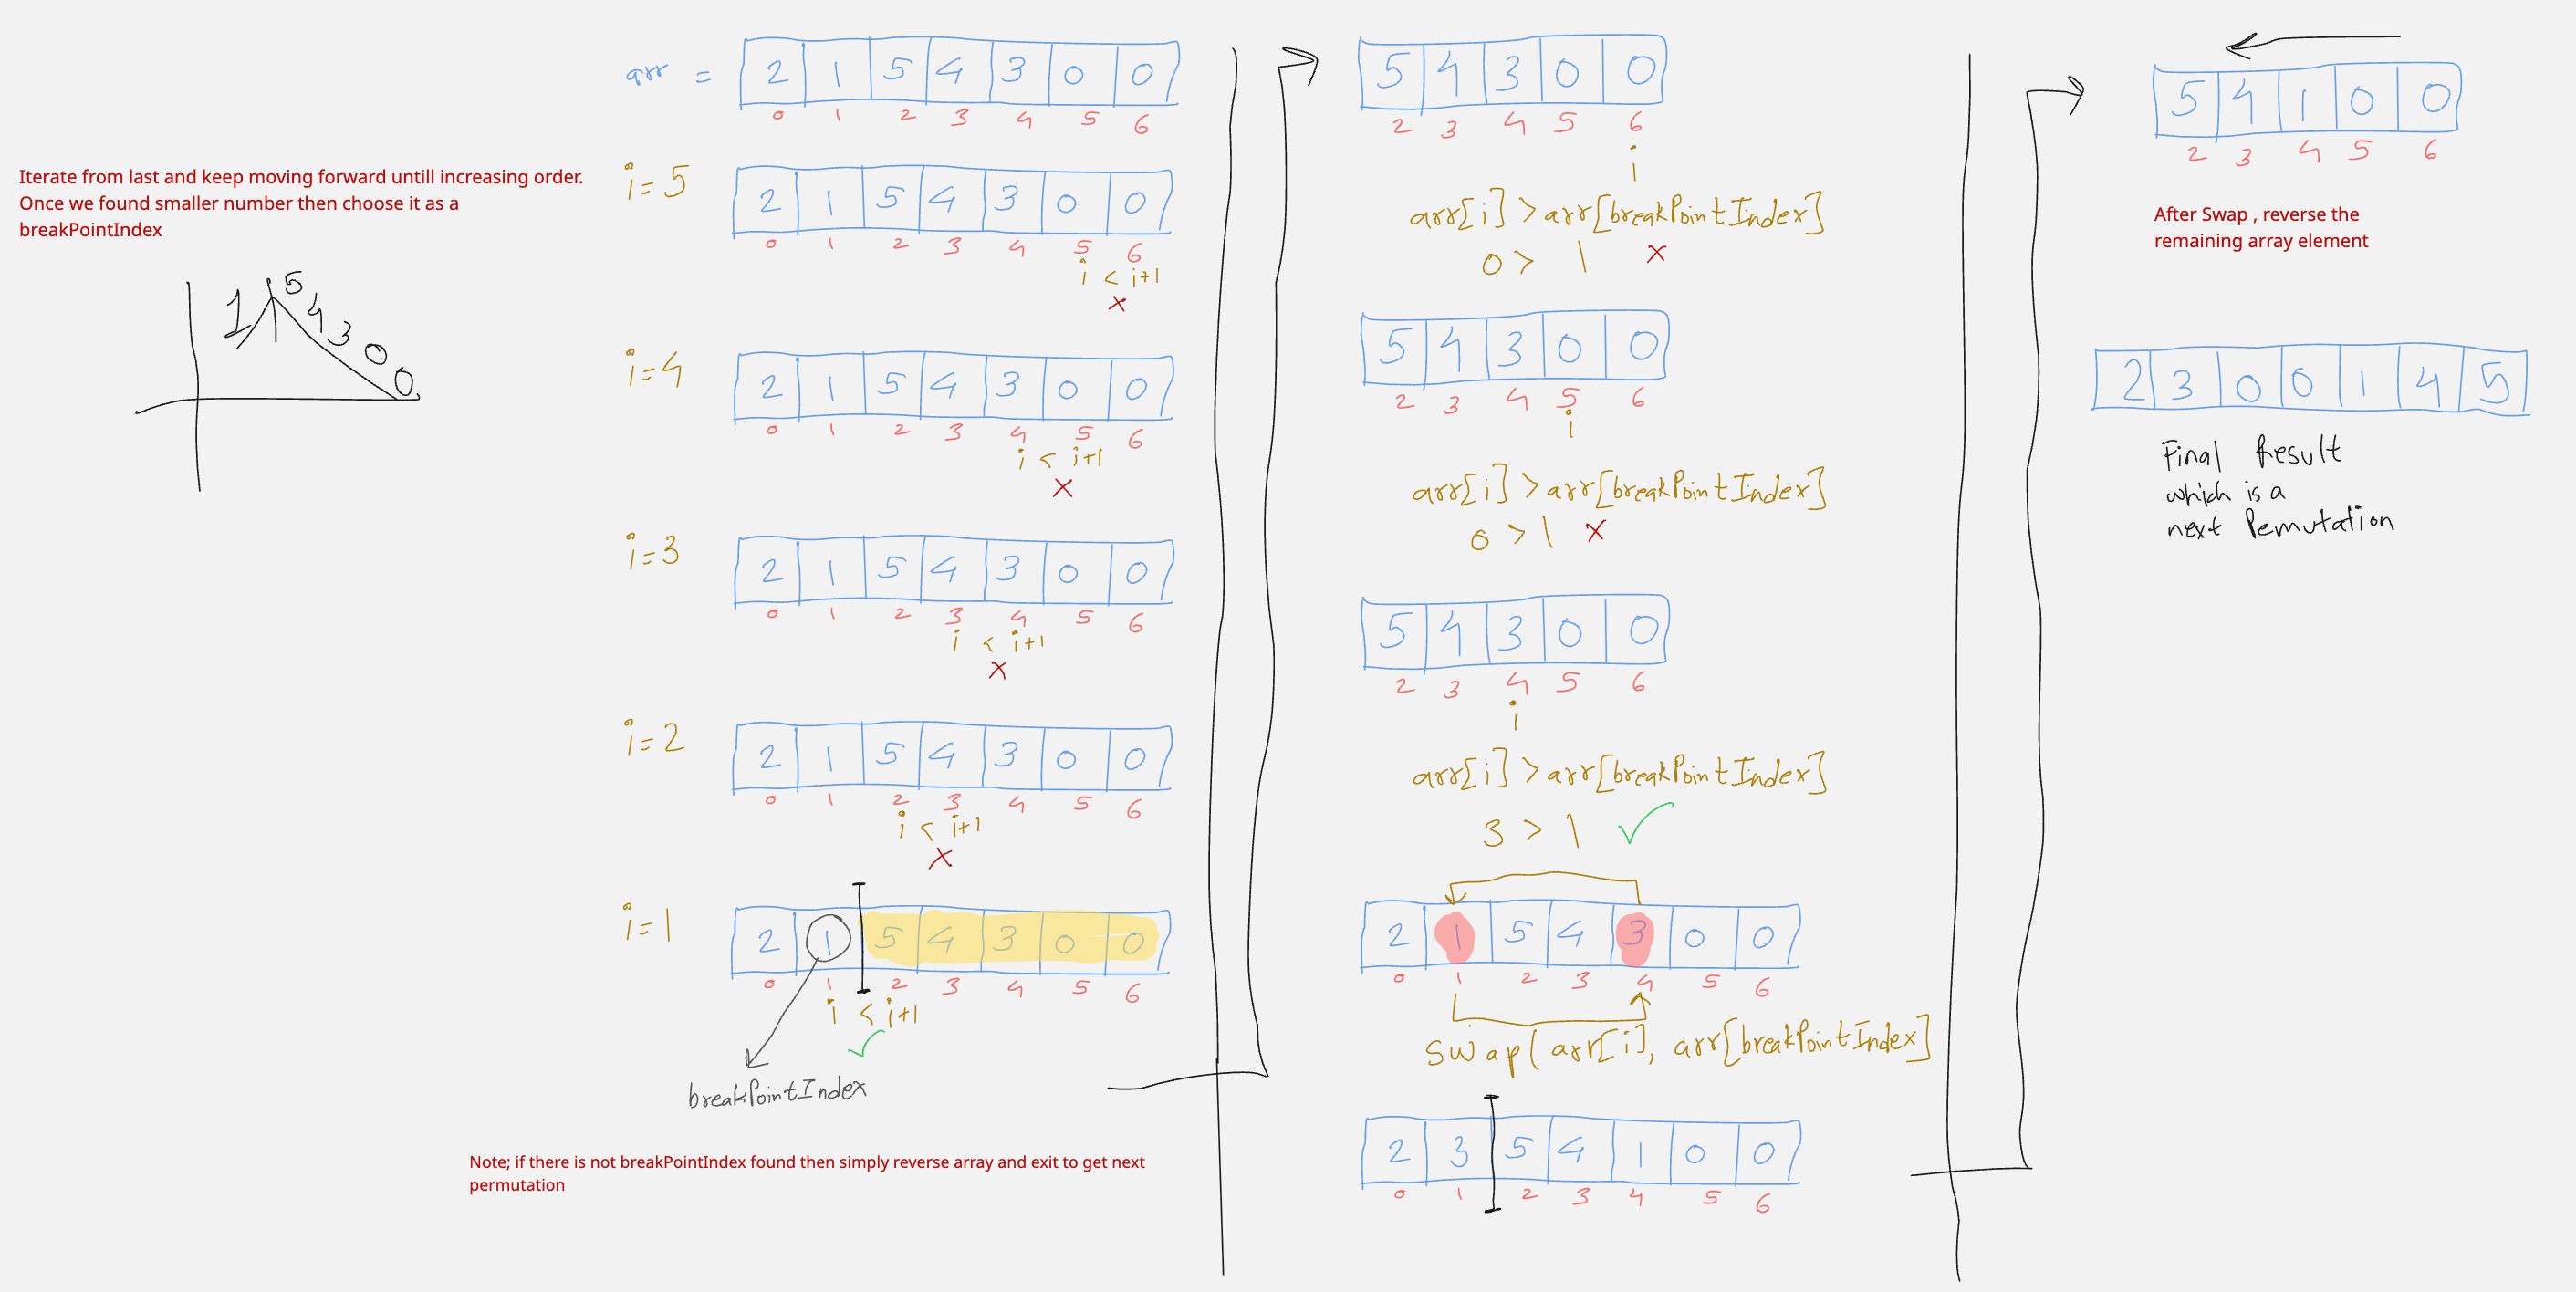 arr = 2 1 5 4 3 0 0
0 1 2 3 4 5 6
Iterate from last and keep moving forward untill increasing order.
Once we found smaller number then choose it as a
breakPointIndex
1 5 4 3 0 0
i=5 2 1 5 4 3 0 0
0 1 2 3 4 5 6
i < i+1
x
i=4 2 1 5 4 3 0 0
0 1 2 3 4 5 6
i < i+1
x
i=3 2 1 5 4 3 0 0
0 1 2 3 4 5 6
i < i+1
x
i=2 2 1 5 4 3 0 0
0 1 2 3 4 5 6
i < i+1
x
i=1 2 1 5 4 3 0 0
0 1 2 3 4 5 6
i < i+1
✓
breakPointIndex
Note; if there is not breakPointIndex found then simply reverse array and exit to get next
permutation
5 4 3 0 0
2 3 4 5 6
i
arr[i] > arr[breakPointIndex]
0 > 1 x
5 4 3 0 0
2 3 4 5 6
i
arr[i] > arr[breakPointIndex]
0 > 1 x
5 4 3 0 0
2 3 4 5 6
i
arr[i] > arr[breakPointIndex]
3 > 1 ✓
2 1 5 4 3 0 0
0 1 2 3 4 5 6
Swap( arr[i], arr[breakPointIndex]
2 3 5 4 1 0 0
0 1 2 3 4 5 6
5 4 1 0 0
2 3 4 5 6
After Swap , reverse the
remaining array element
2 3 0 0 1 4 5
Final Result
which is a
next Pemutation